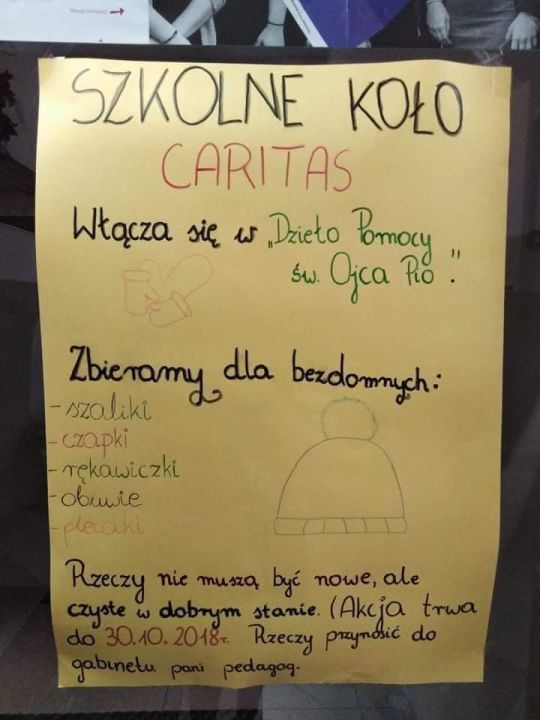 SZKOLNE KOŁO
CARITAS
Włącza się w „Dzieło Pomocy
św. Ojca Pio".
Zbieramy dla bezdomnych:
- szaliki
- czapki
- rękawiczki
- obuwie
- plecaki
Rzeczy nie muszą być nowe, ale
czyste w dobrym stanie. (Akcja trwa
do 30.10.2018r. Rzeczy przynosić do
gabinetu pani pedagog.